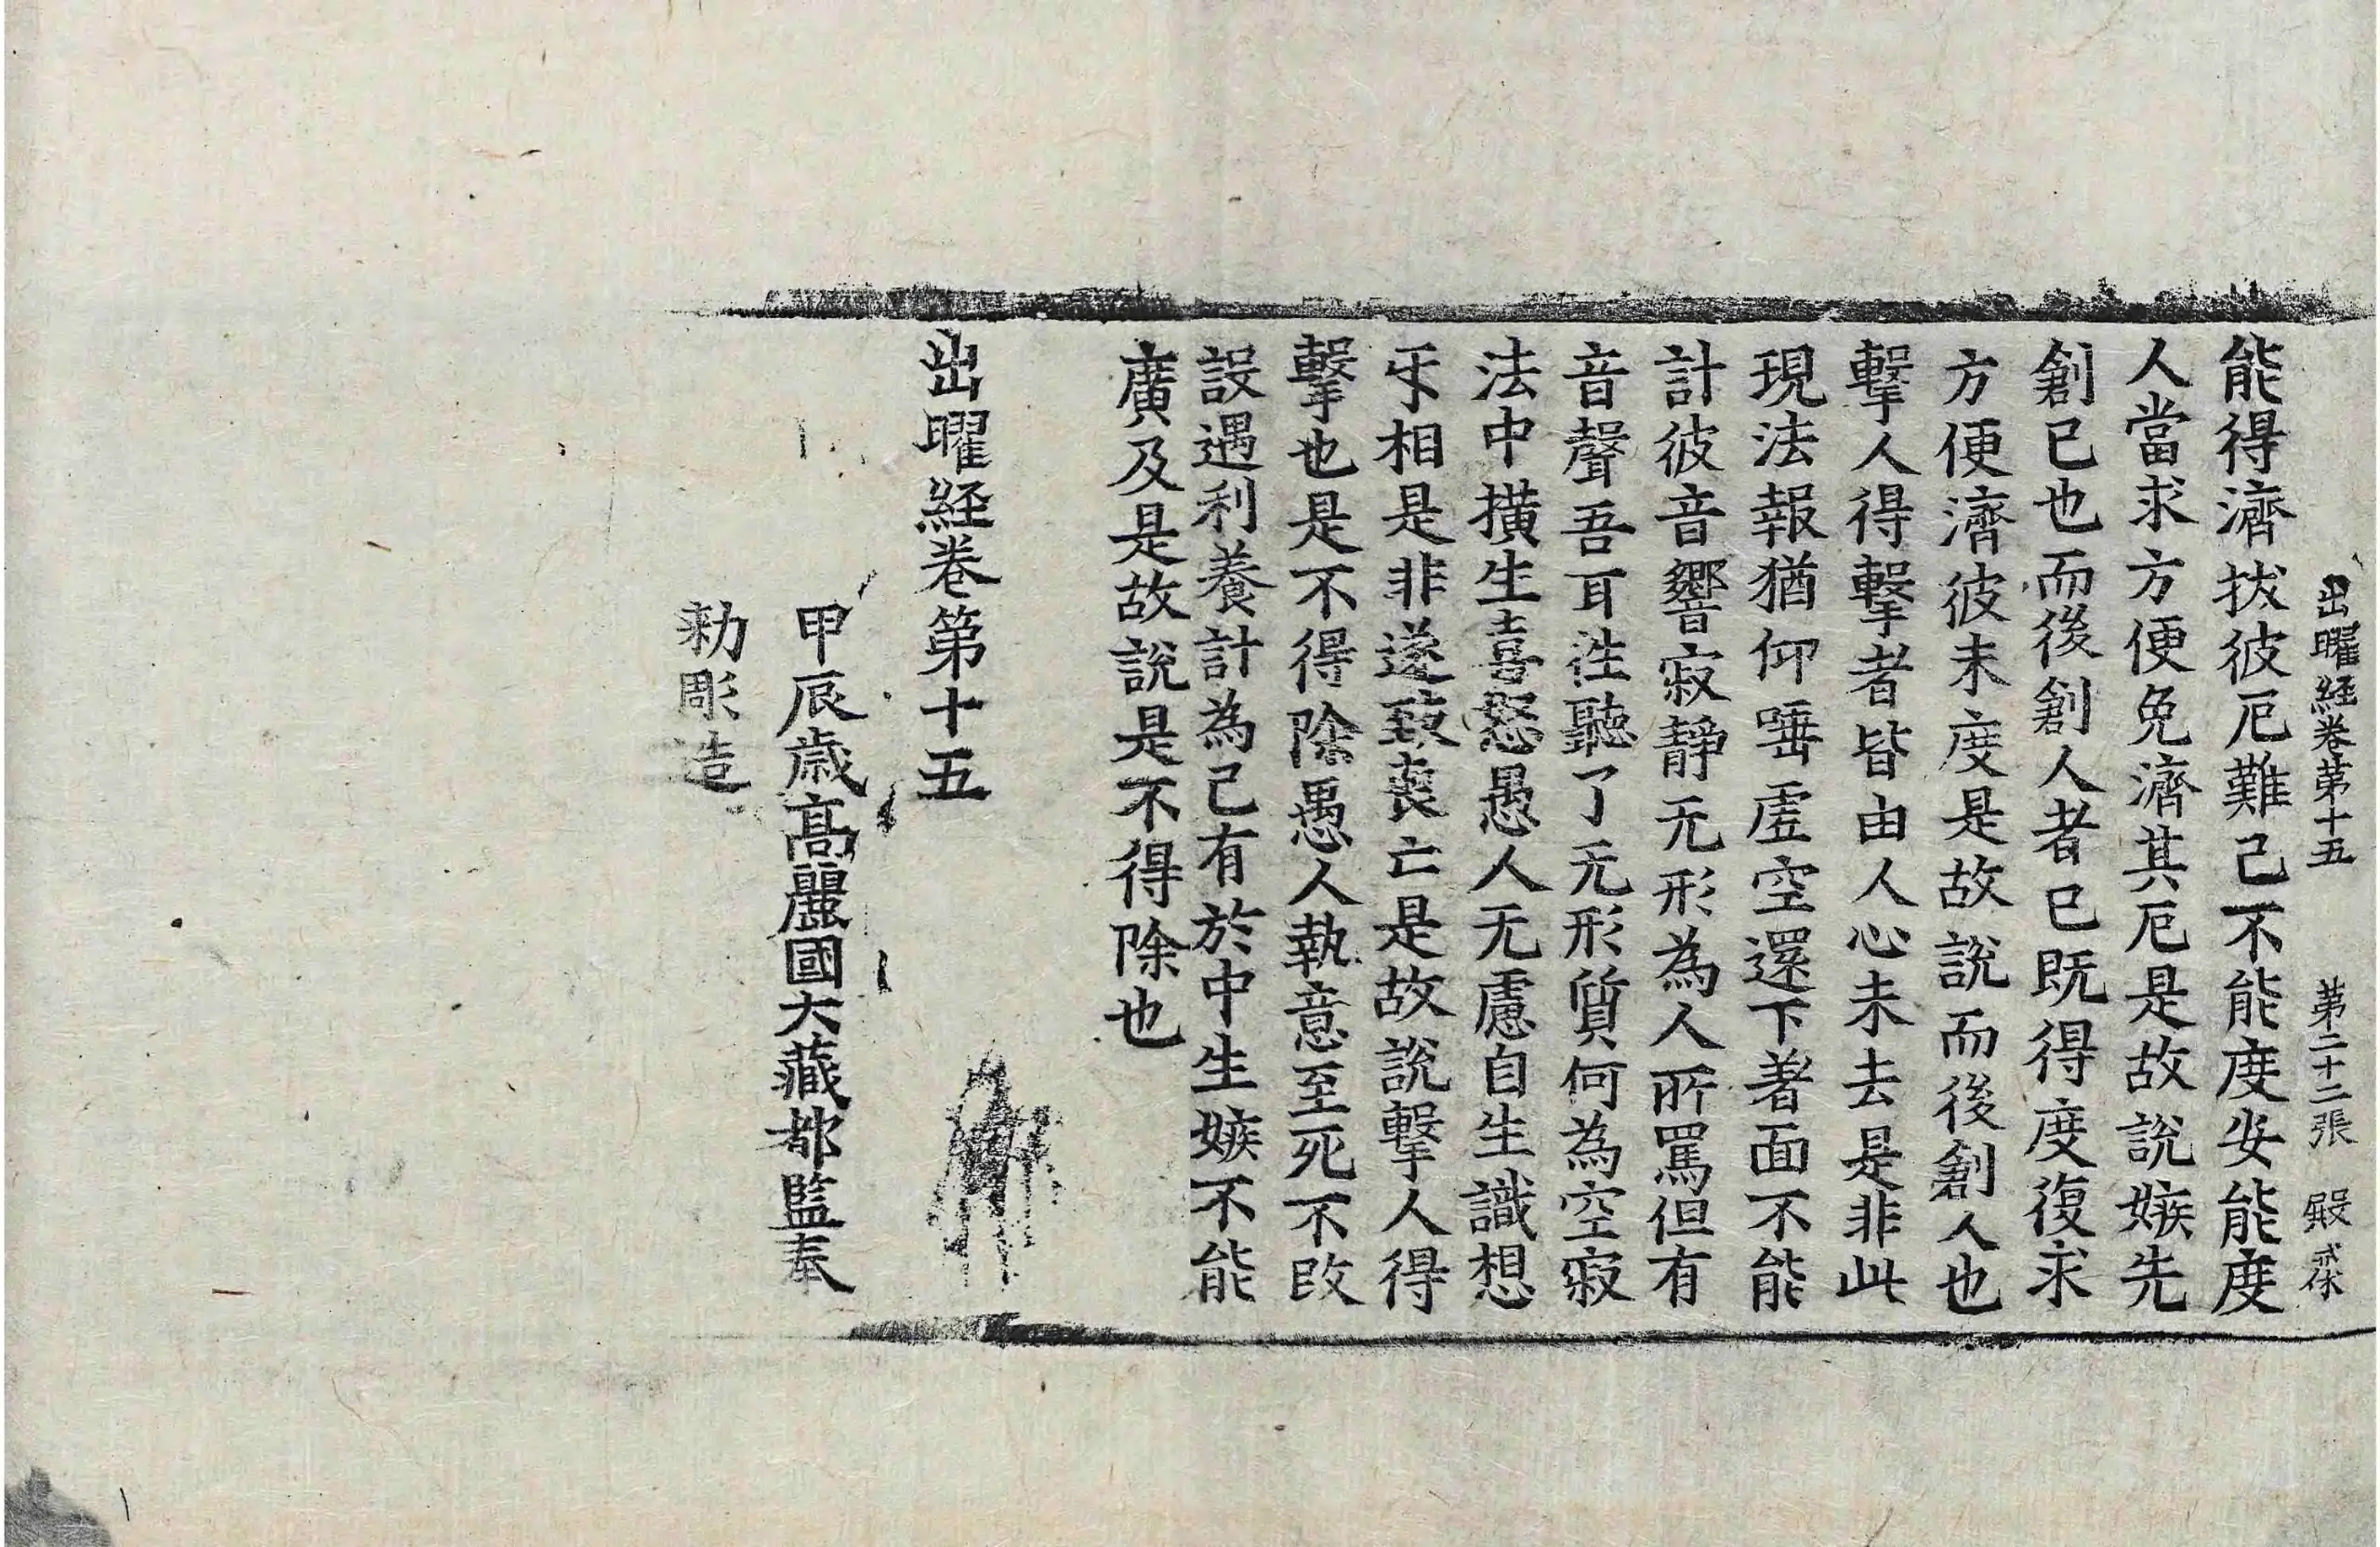 出曜経卷苐十五　苐二十二張　殿
能得濟拔彼厄難己不能度安能度
人當求方便免濟其厄是故說嫉先
創已也而後創人者已既得度復求
方便濟彼未度是故說而後創人也
擊人得擊者皆由人心未去是非此
現法報猶仰唾虛空還下著面不能
計彼音響寂靜无形為人所罵但有
音聲吾耳往聽了无形質何為空寂
法中撗生喜怒愚人无慮自生識想
㸦相是非遂致喪亡是故說擊人得
擊也是不得除愚人執意至死不改
設遇利養計為己有於中生嫉不能
廣及是故說是不得除也
出曜経卷第十五
甲辰歲高麗國大藏都監奉
勑彫造